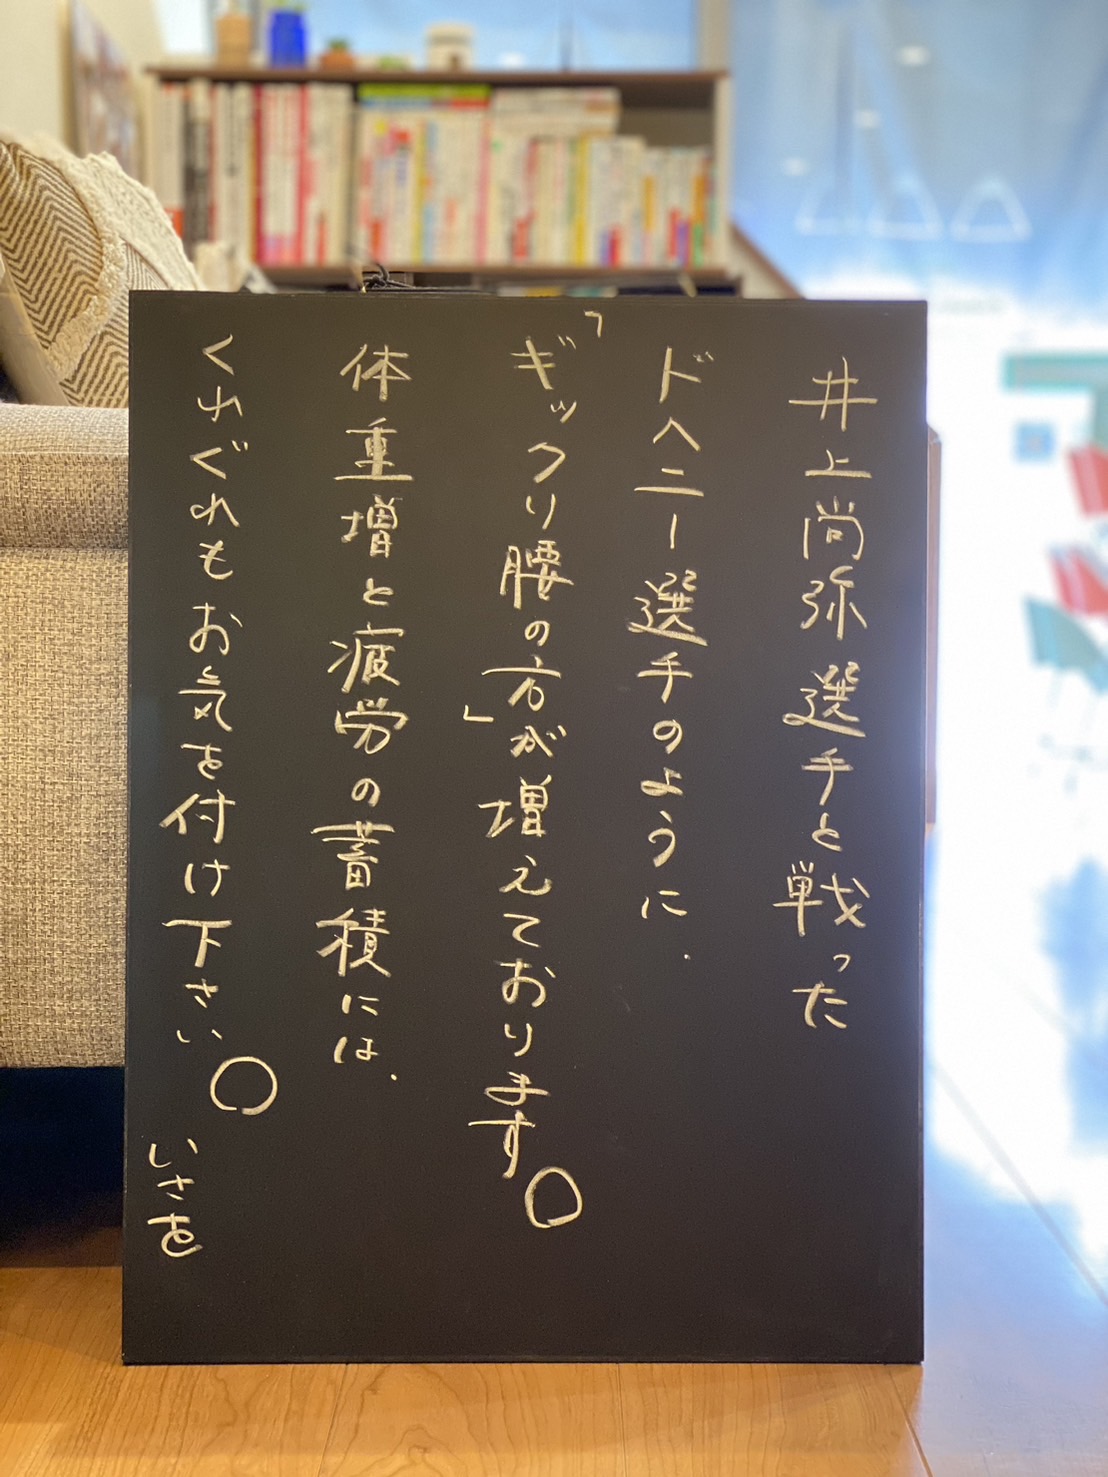 井上尚弥選手と戦った
ドヘニー選手のように.
「ギックリ腰の方」が増えております。
体重増と疲労の蓄積には.
くれぐれもお気を付け下さい。
いさを